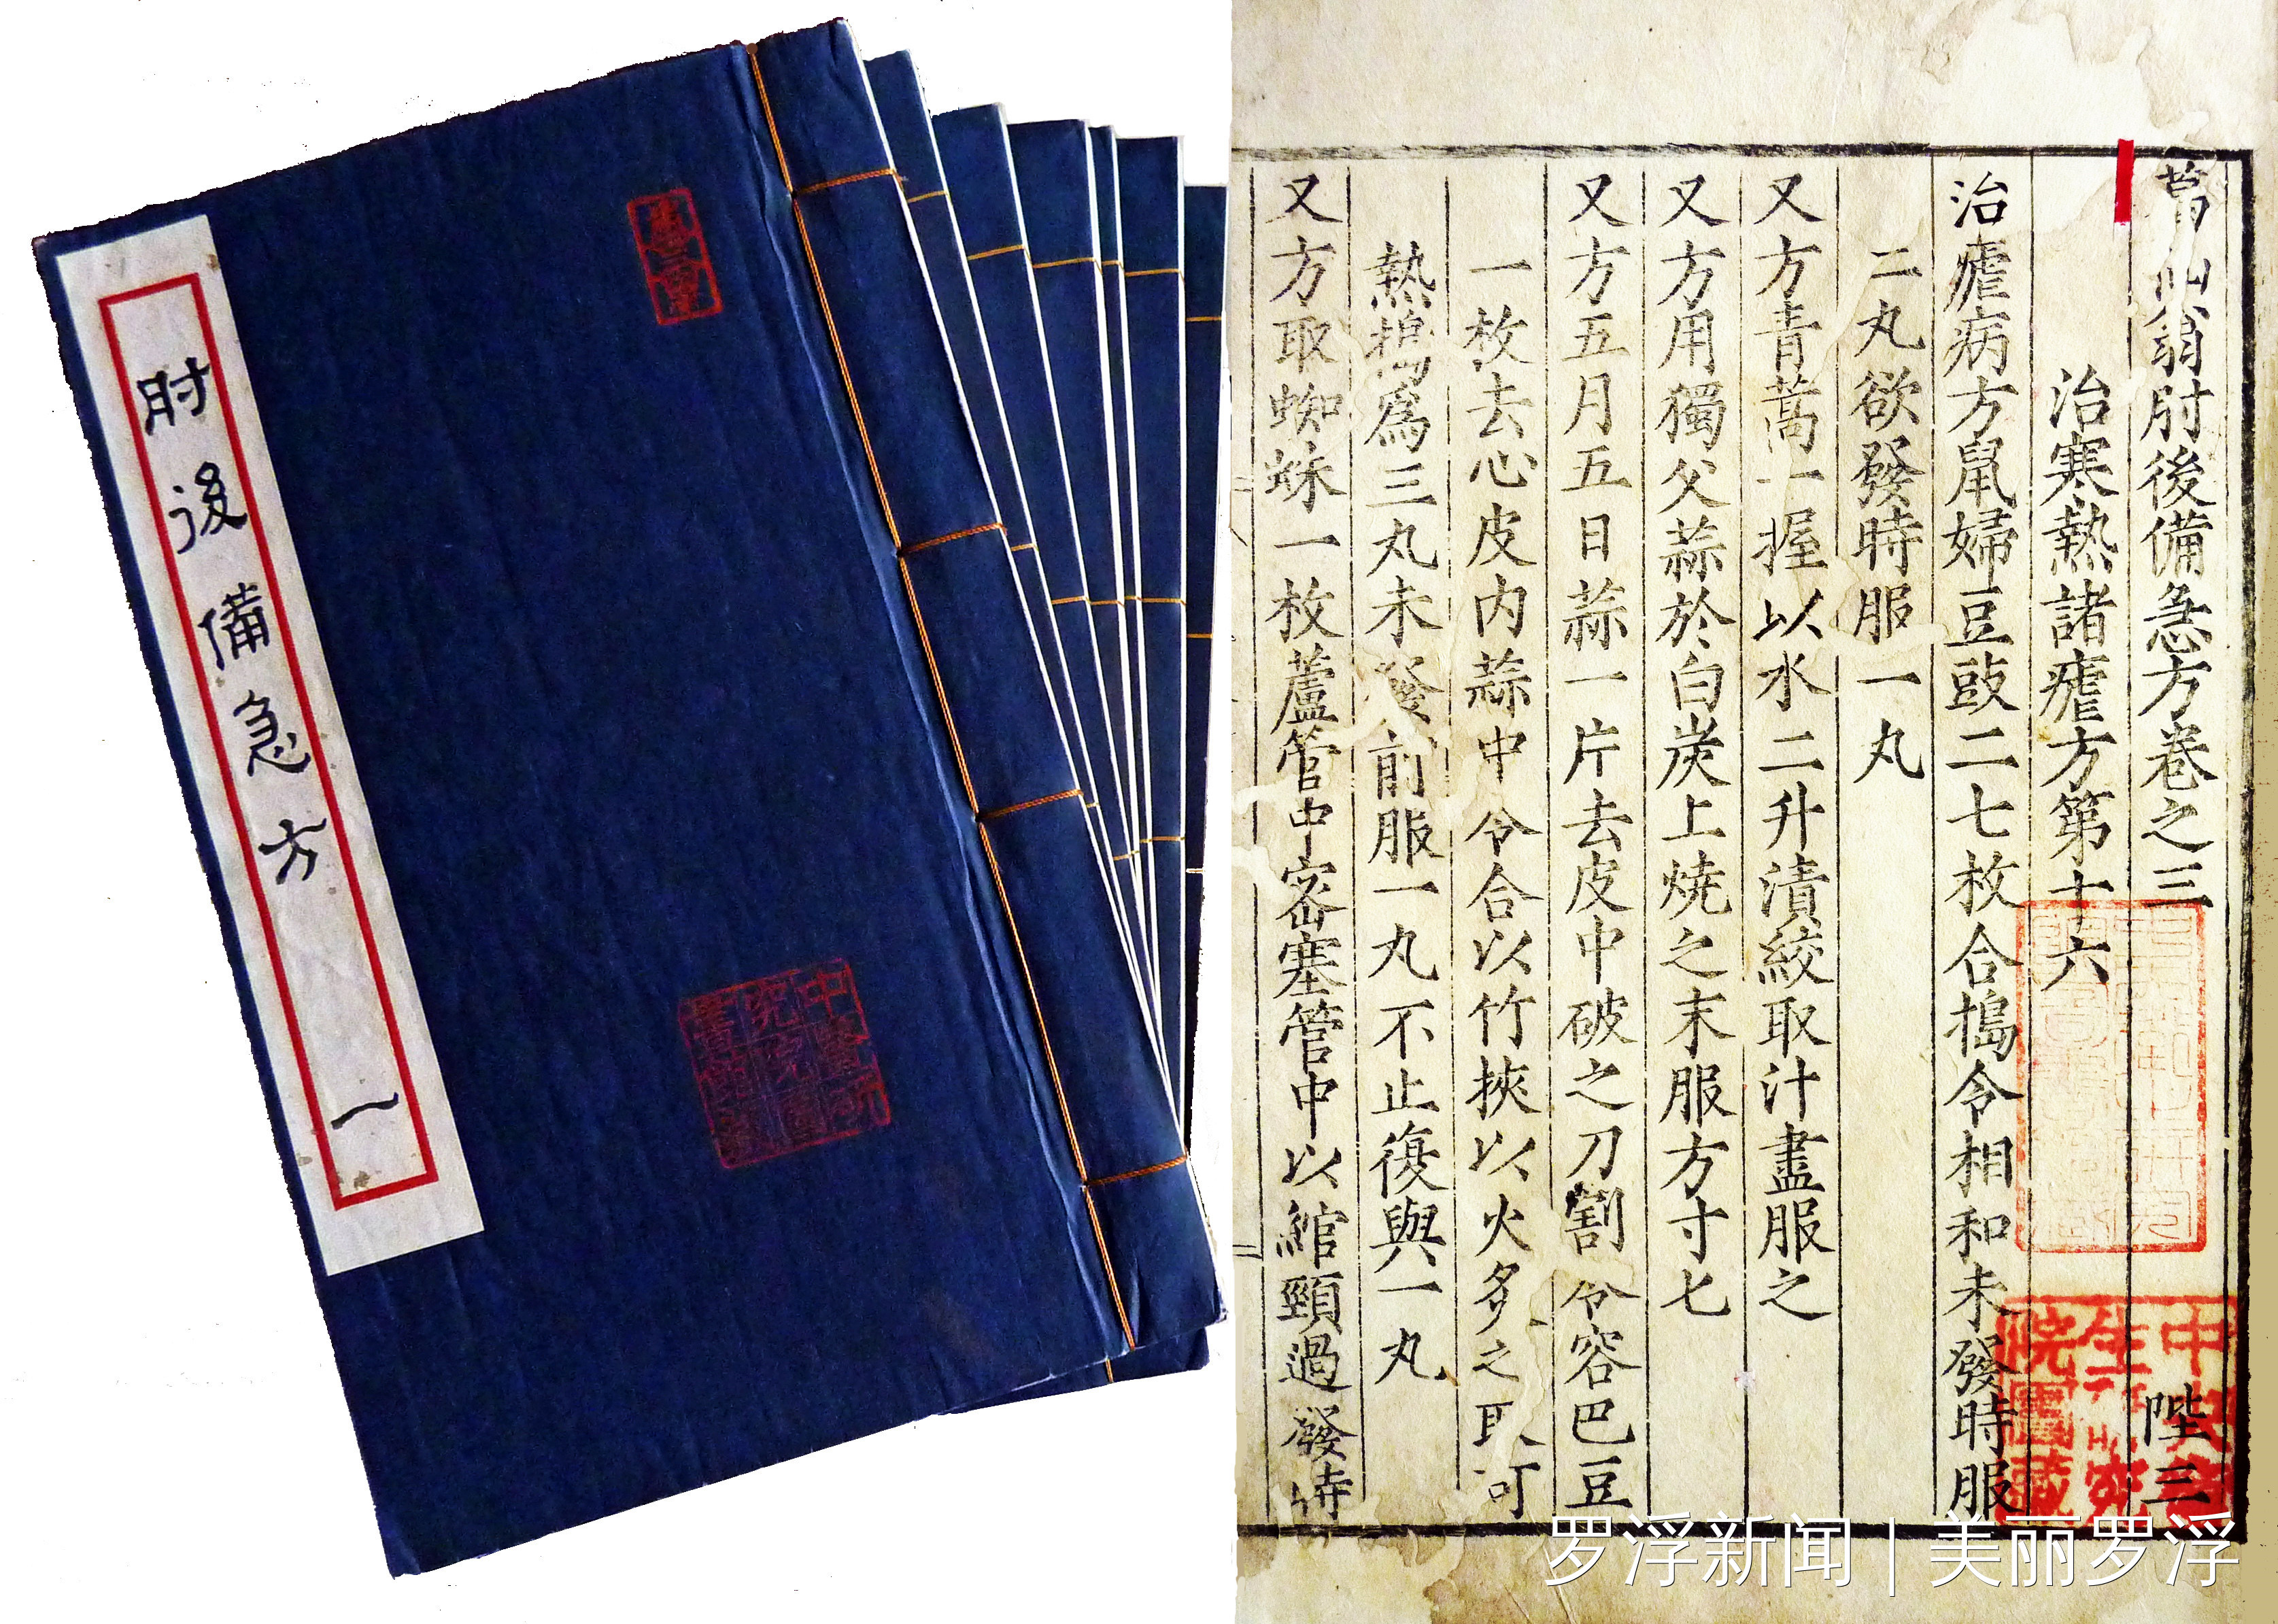 肘後備急方 一
葛仙翁肘後備急方卷之三 陛三
治寒熱諸瘧方第十六
治瘧病方鼠婦豆豉二七枚合搗令相和未發時服
二丸欲發時服一丸
又方青蒿一握以水二升漬絞取汁盡服之
又方用獨父蒜於白炭上燒之末服方寸匕
又方五月五日蒜一片去皮中破之刀割令容巴豆
一枚去心皮内蒜中令合以竹挾以火炙之取可
熱搗為三丸未發前服一丸不止復與一丸
又方取蜘蛛一枚蘆管中密塞管中以綰頸過發時
罗浮新闻 | 美丽罗浮